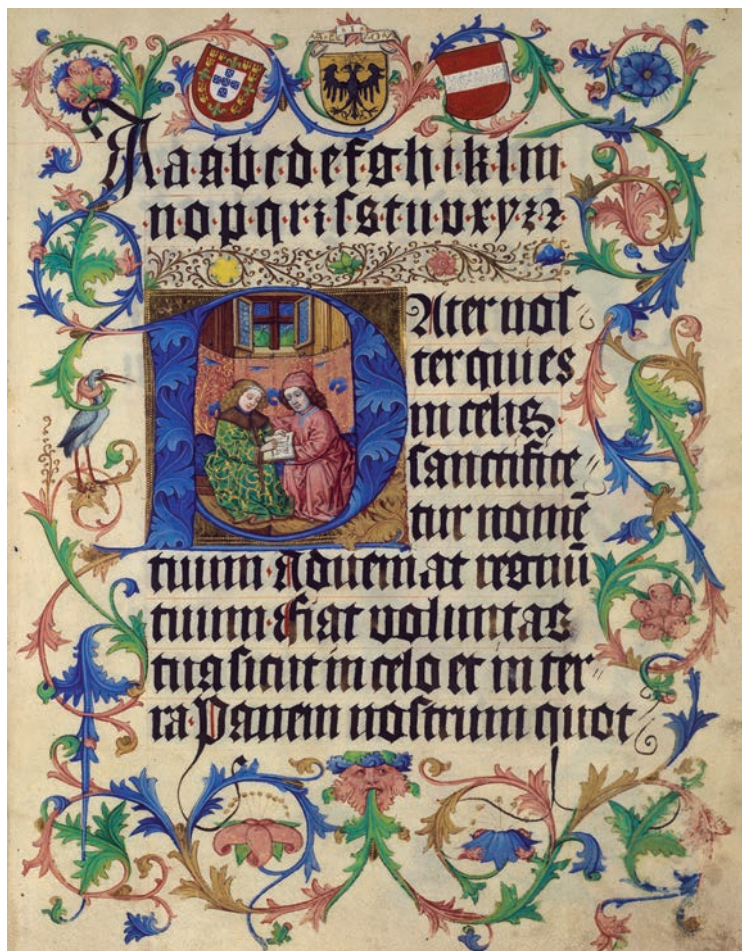 A E I O V
A a a b c d e f g h i k l m
n o p q r ꝛ ſ s t u v x y z ꝛ
PAter noſ
ter qui es
in celis
ſanctifice
tur nomē
tuum · Adueniat regnū
tuum · Fiat voluntas
tua ſicut in celo et in ter
ra Panem noſtrum quot